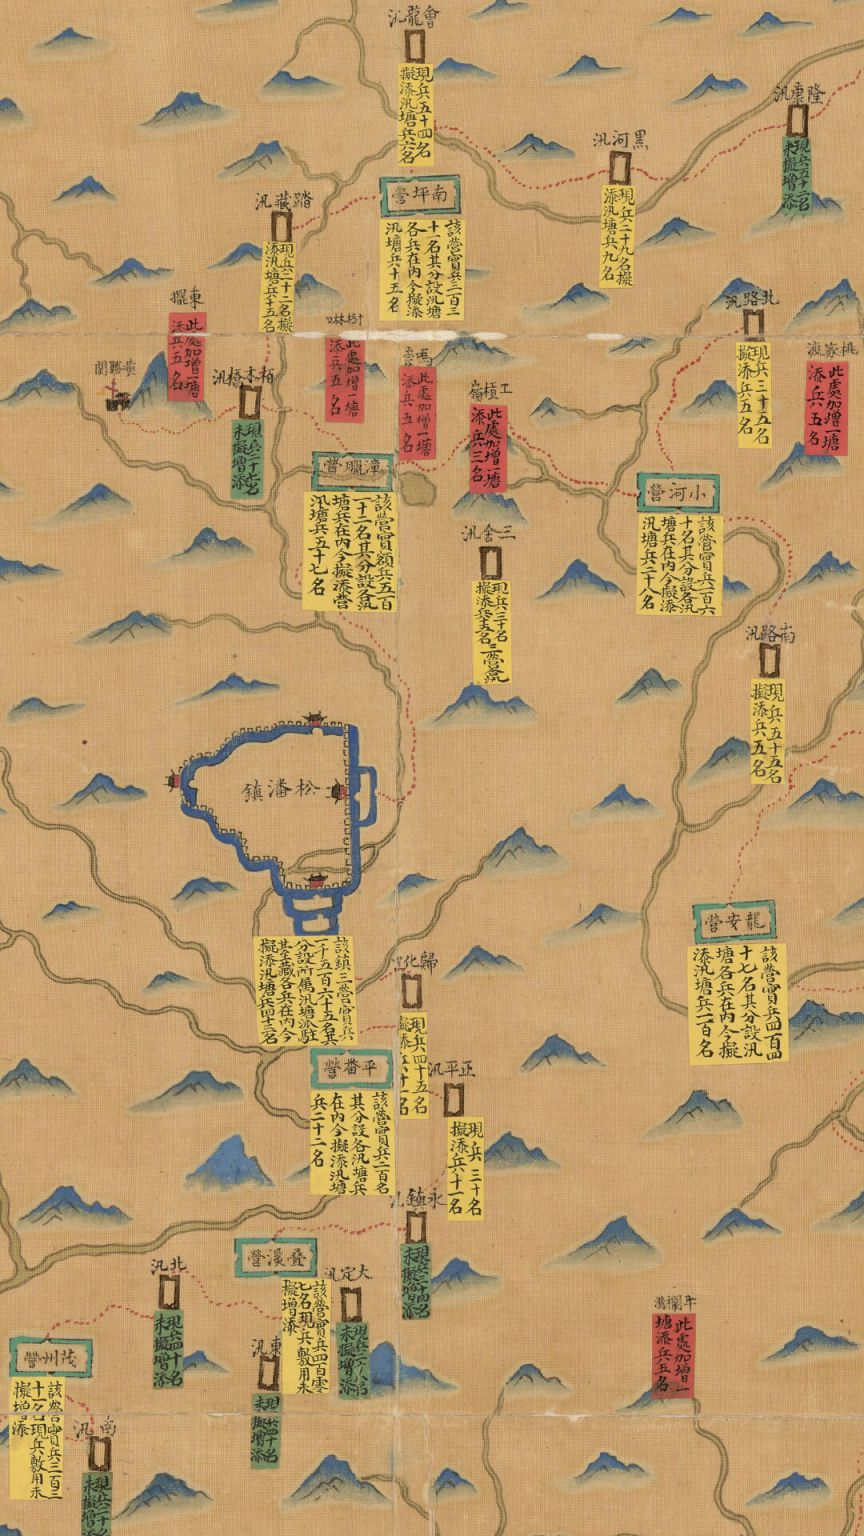 會龍汛
現兵五十四名
擬添汛塘兵六名
隆康汛
現兵五十二名
未擬增添
黑河汛
現兵二十九名擬
添汛塘兵九名
南坪營
該營實兵三百三
十一名其分設汛塘
各兵在內今擬添
汛塘兵十五名
踏藏汛
現兵三十二名擬
添汛塘兵十五名
東擺
此處加增一塘
添兵五名
此處加增一塘
添兵五名
此處加增一塘
添兵五名
工槓嶺
此處加增一塘
添兵三名
北路汛
現兵三十五名
擬添兵五名
桃家渡
此處加增一塘
添兵五名
黃勝關
柏木橋汛
現兵二十七名
未擬增添
漳臘營
該營實額兵五百
一十二名其分設各汛
塘兵在內今擬添營
汛塘兵五十七名
小河營
該營實兵二百六
十名其分設各汛
塘兵在內今擬添
汛塘兵二十八名
三舍汛
現兵三十名
擬添兵十五名
南路汛
現兵五十五名
擬添兵五名
松潘鎮
該鎮三營實兵
一千五百六十五名其
分設所屬汛塘派駐
各兵在內今
擬添汛塘兵四十三名
龍安營
該營實兵四百四
十七名其分設汛
塘各兵在內今擬
添汛塘兵一百名
歸化汛
現兵四十五名
擬添兵十一名
平番營
該營實兵二百名
其分設各汛塘兵
在內今擬添汛塘
兵二十二名
正平汛
現兵三十名
擬添兵六十一名
永鎮汛
現兵三十四名
未擬增添
疊溪營
該營實兵四百零
七名現兵敷用未
擬增添
大定汛
現兵二十八名
未擬增添
北汛
現兵四十名
未擬增添
東汛
現兵四十名
未擬增添
茂州營
該營實兵三百三
十一名現兵敷用未
擬增添
南汛
現兵二十名
未擬增添
牛欄
此處加增一
塘添兵五名